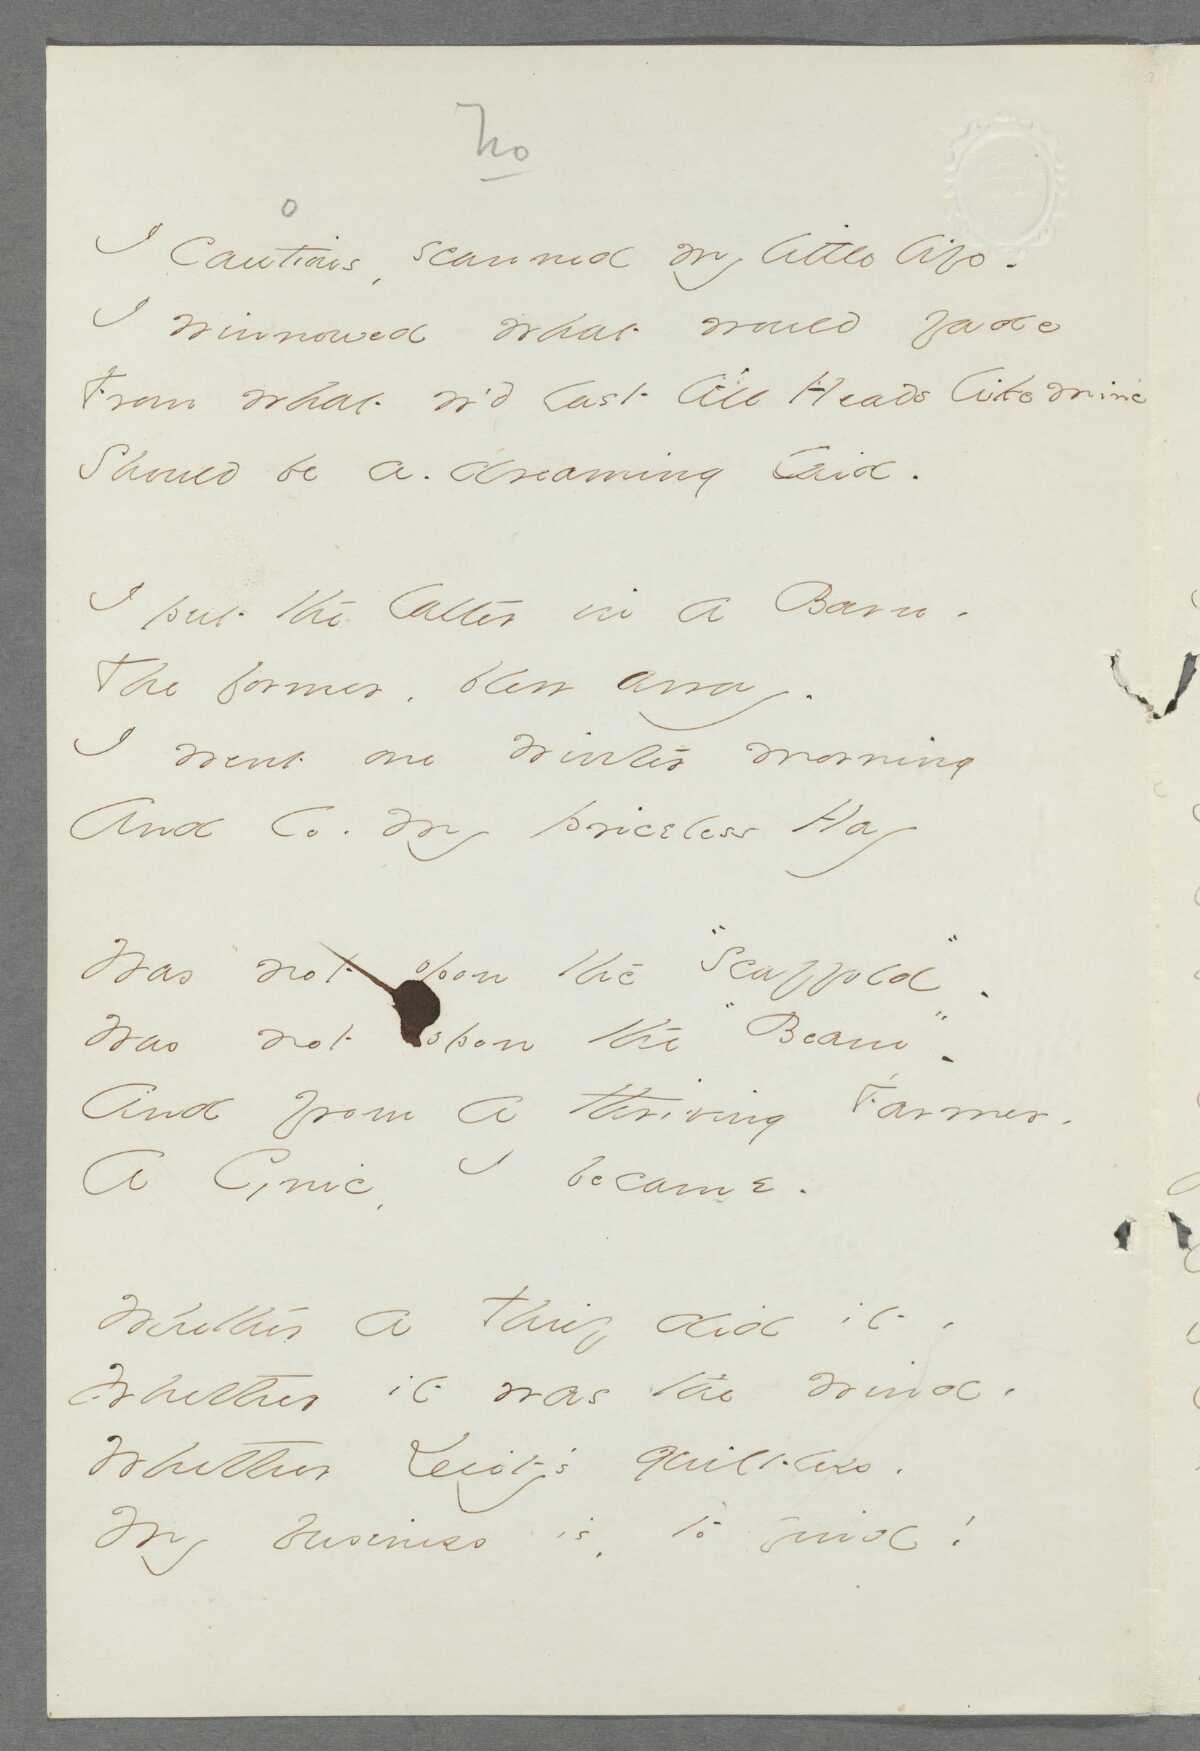 No
o
I Cautious, scanned my little life.
I winnowed what would fade
From what w'd last till Heads like mine
Should be a. dreaming laid.
I put the latter in a Barn.
The former, blew away.
I went one winter morning
And lo. my priceless Hay
Was not upon the "Scaffold".
Was not upon the "Beam".
And from a thriving Farmer.
A Cynic, I became.
Whether a Thief did it.
Whether it was the wind.
Whether Deity's guiltless.
My business is, to find!